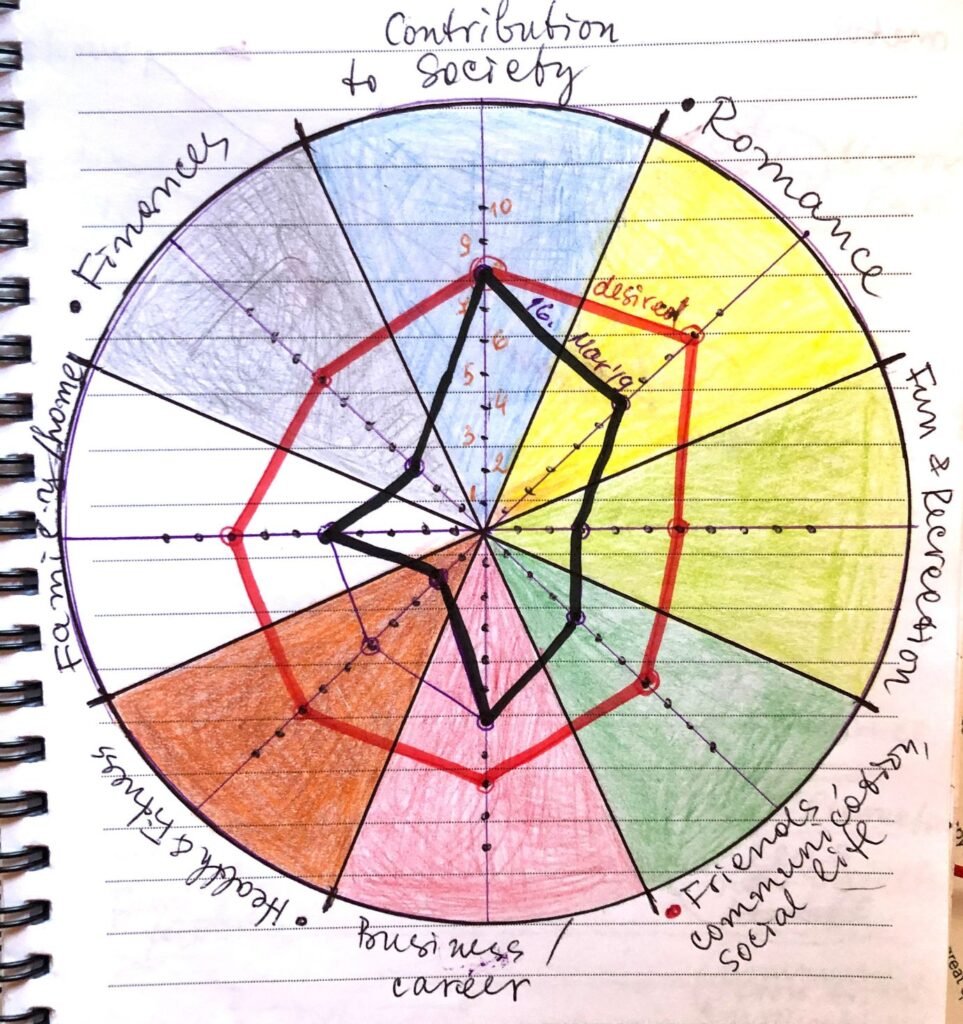 Contribution
to Society
• Romance
Fun & Recreation
• Friends
communication
social life
Business /
career
• Health & Fitness
Family/home
• Finances
10
9
7
6
5
4
3
2
1
desired
16. Mar'19